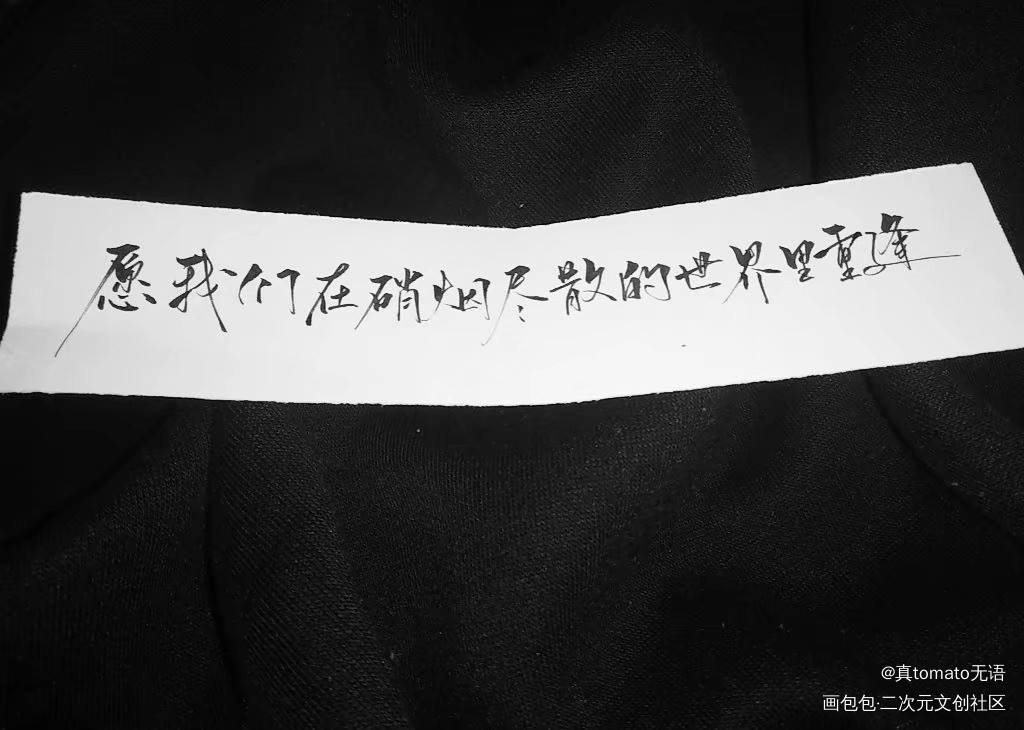 愿我们在硝烟尽散的世界里重逢
@真tomato无语
画包包·二次元文创社区